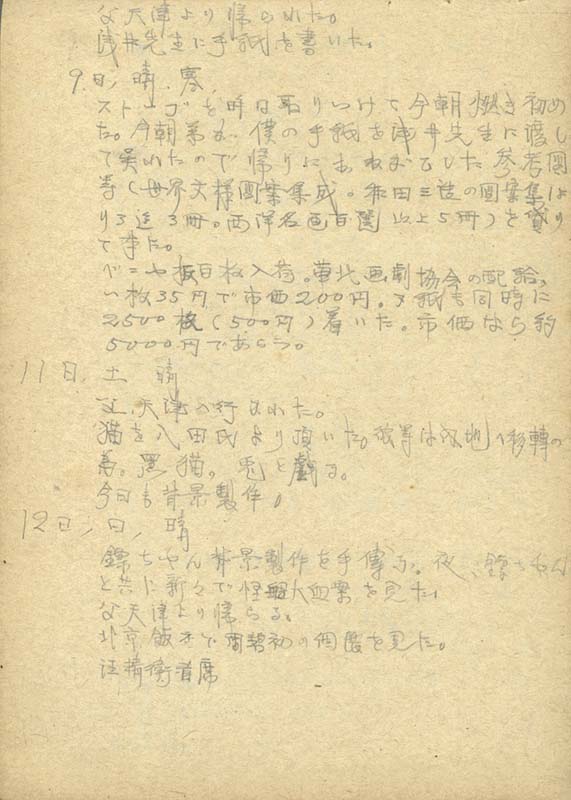 父天津より帰られた。
浅井先生に手紙を書いた。
9.日, 晴. 寒,
ストーブを昨日取りつけて今朝燃き初め
た。今朝弟が僕の手紙を浅井先生に渡し
て呉れたので帰りにおねがひした参考圖
等(世界文様圖案集成。和田三造の圖案集1よ
り3迄3冊。西洋名画百選以上5冊)を貸り
て来た。
ベニヤ板百枚入荷。華北画劇協会の配給。
一枚35円で市価200円。了紙も同時に
2500枚(500円)着いた。市価なら約
5000円であらう。
11日, 土 晴
父天津へ行かれた。
猫を八田氏より頂いた。彼等は内地へ移轉の
為。黒猫。兎と戯る。
今日も背景製作。
12日, 日, 晴
ちやん背景製作を手傳ふ。夜、ちやん
と共に新々で怪大血案を見た。
父天津より帰らる。
北京飯店で初の個展を見た。
汪精衛首席